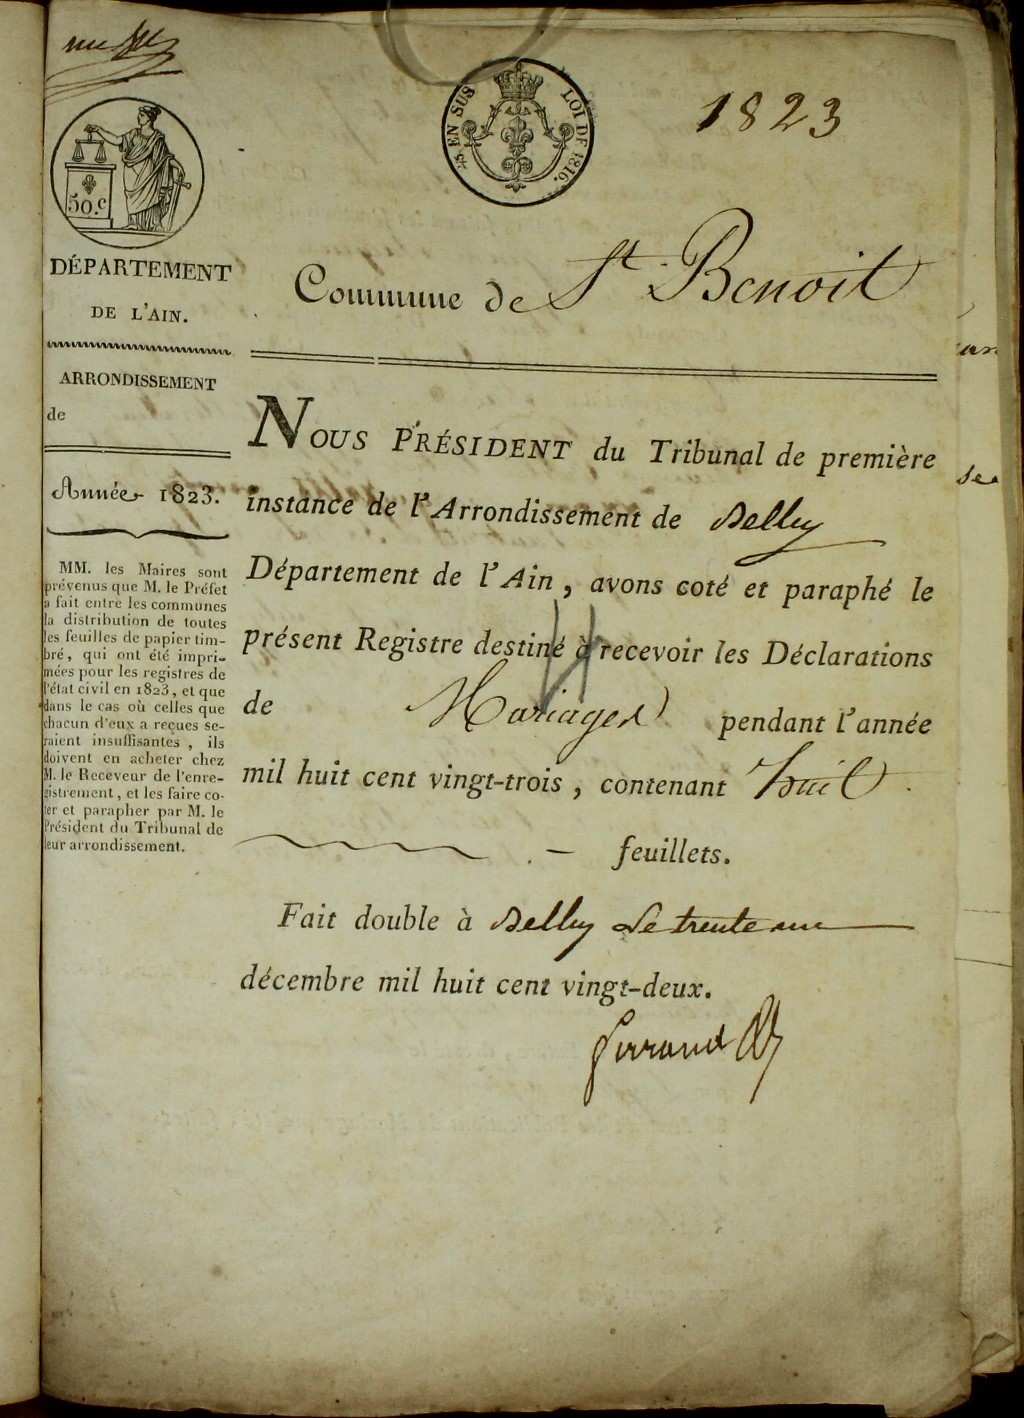 1823
⅕ EN SUS
LOI DE 1816.
50.c
DÉPARTEMENT
DE L'AIN.
ARRONDISSEMENT
de
Année 1823.
MM. les Maires sont
prévenus que M. le Préfet
a fait entre les communes
la distribution de toutes
les feuilles de papier tim-
bré, qui ont été impri-
mées pour les registres de
l'état civil en 1823, et que
dans le cas où celles que
chacun d'eux a reçues se-
raient insuffisantes, ils
doivent en acheter chez
M. le Receveur de l'enre-
gistrement, et les faire co-
ter et parapher par M. le
Président du Tribunal de
leur arrondissement.
Commune de St Benoit
NOUS PRÉSIDENT du Tribunal de première
instance de l'Arrondissement de Belley
Département de l'Ain, avons coté et paraphé le
présent Registre destiné à recevoir les Déclarations
de Mariages pendant l'année
mil huit cent vingt-trois, contenant huit
feuillets.
Fait double à Belley le trente un
décembre mil huit cent vingt-deux.